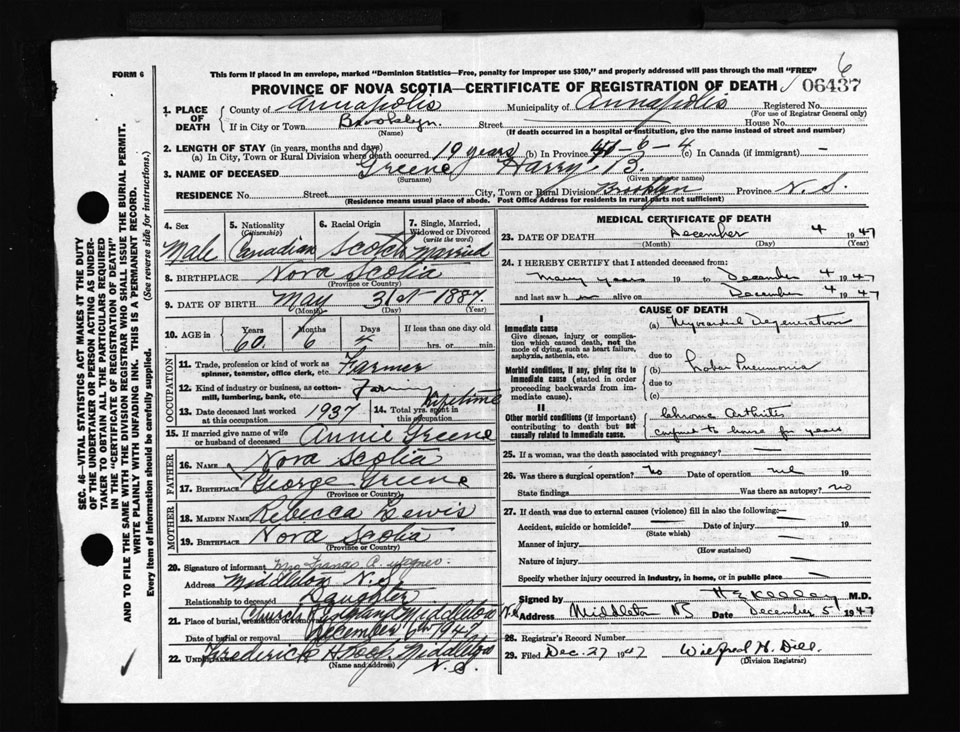 6
FORM 6
This form if placed in an envelope, marked "Dominion Statistics—Free, penalty for improper use $300," and properly addressed will pass through the mail "FREE"
PROVINCE OF NOVA SCOTIA—CERTIFICATE OF REGISTRATION OF DEATH 06437
1. PLACE OF DEATH County of Annapolis Municipality of Annapolis Registered No.
(For use of Registrar General only)
If in City or Town Brooklyn. Street House No.
(Name) (If death occurred in a hospital or institution, give the name instead of street and number)
2. LENGTH OF STAY (in years, months and days)
(a) In City, Town or Rural Division where death occurred. 19 years (b) In Province -6-4 (c) In Canada (if immigrant) —
3. NAME OF DECEASED Greene Harry B.
(Surname) (Given name or names)
RESIDENCE No. Street City, Town or Rural Division Brooklyn Province N.S.
(Residence means usual place of abode. Post Office Address for residents in rural parts not sufficient)
4. Sex 5. Nationality (Citizenship) 6. Racial Origin 7. Single, Married, Widowed or Divorced (write the word)
Male Canadian Scotch Married
8. BIRTHPLACE Nova Scotia
(Province or Country)
9. DATE OF BIRTH May 31st 1887.
(Month) (Day) (Year)
10. AGE in Years Months Days If less than one day old
60 6 4 hrs. or min.
OCCUPATION
11. Trade, profession or kind of work as spinner, teamster, office clerk, etc. Farmer
12. Kind of industry or business, as cotton-mill, lumbering, bank, etc.
13. Date deceased last worked at this occupation 1937 14. Total yrs. spent in this occupation Lifetime
15. If married give name of wife or husband of deceased Annie Greene
FATHER
16. NAME Nova Scotia
17. BIRTHPLACE George Greene
(Province or Country)
MOTHER
18. MAIDEN NAME Rebecca Lewis
19. BIRTHPLACE Nova Scotia
(Province or Country)
20. Signature of informant Mrs Francis A.
Address Middleton N.S.
Relationship to deceased Daughter
21. Place of burial, Church of England Middleton N.S.
Date of burial or removal December 6th 1947
22. Frederick Middleton
(Name and address) N.S.
MEDICAL CERTIFICATE OF DEATH
23. DATE OF DEATH December 4 1947
(Month) (Day) (Year)
24. I HEREBY CERTIFY that I attended deceased from:
many years 19 to December 4 1947
and last saw h im alive on December 4 1947
CAUSE OF DEATH
I
Immediate cause
Give disease, injury or complication which caused death, not the mode of dying, such as heart failure, asphyxia, asthenia, etc.
(a) Myocardial Degeneration
due to
Morbid conditions, if any, giving rise to immediate cause (stated in order proceeding backwards from immediate cause).
(b) Lobar Pneumonia
due to
(c)
II
Other morbid conditions (if important) contributing to death but not causally related to immediate cause.
Chronic Arthritis
confined to house for years
25. If a woman, was the death associated with pregnancy? —
26. Was there a surgical operation? No Date of operation nil 19
State findings Was there an autopsy? no
27. If death was due to external causes (violence) fill in also the following:—
Accident, suicide or homicide? Date of injury 19
(State which)
Manner of injury
(How sustained)
Nature of injury
Specify whether injury occurred in industry, in home, or in public place
Signed by M.D.
Address Middleton NS Date December 5 1947
28. Registrar's Record Number
29. Filed Dec. 27 1947 Wilfred H. Dill.
(Division Registrar)
SEC. 46—VITAL STATISTICS ACT MAKES IT THE DUTY OF THE UNDERTAKER OR PERSON ACTING AS UNDERTAKER TO OBTAIN ALL THE PARTICULARS REQUIRED IN THE "CERTIFICATE OF REGISTRATION OF DEATH" AND TO FILE THE SAME WITH THE DIVISION REGISTRAR WHO SHALL ISSUE THE BURIAL PERMIT.
WRITE PLAINLY WITH UNFADING INK. THIS IS A PERMANENT RECORD.
Every item of information should be carefully supplied. (See reverse side for instructions.)